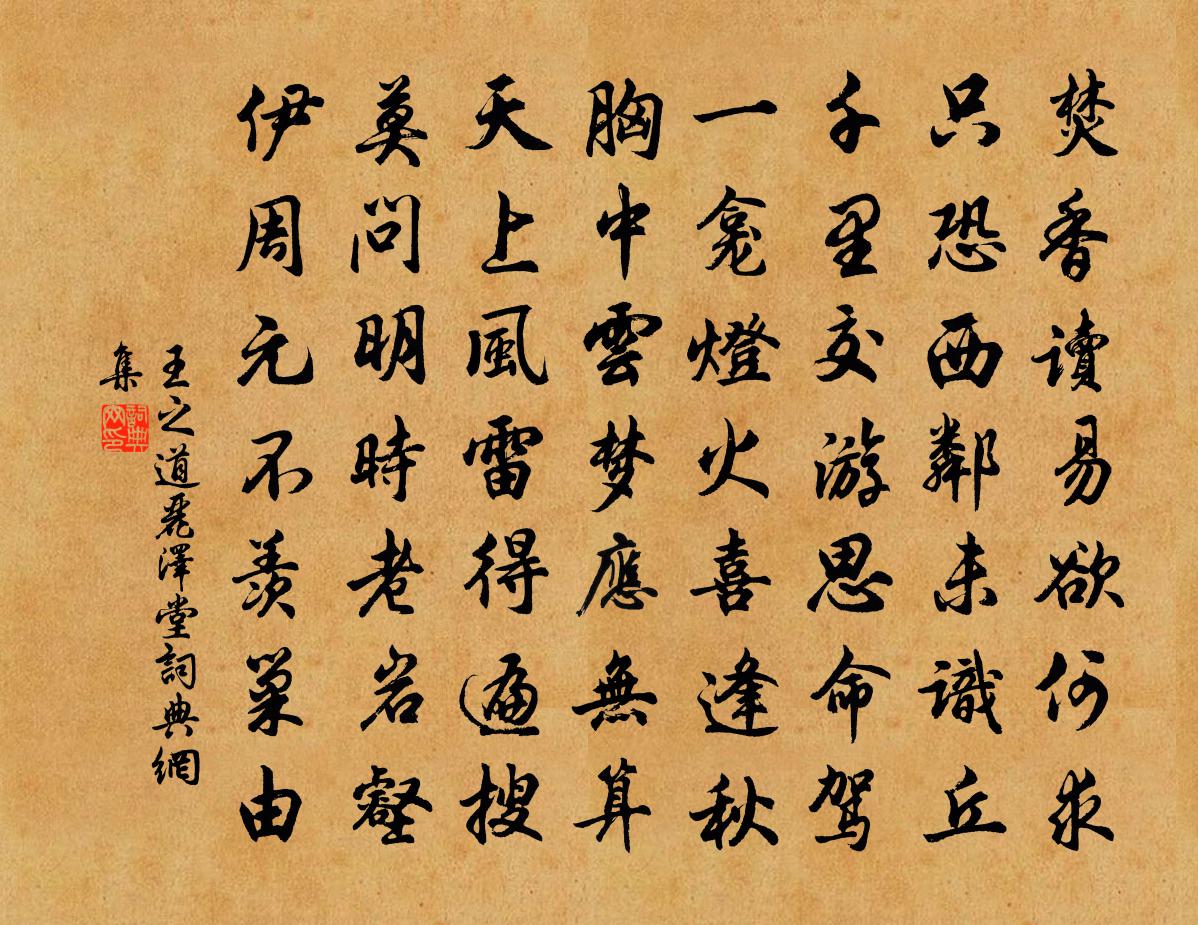 焚香讀易欲何求
只恐西鄰未識丘
千里交游思命駕
一龛燈火喜逢秋
胸中雲梦應無算
天上風雷得遍搜
莫問明時老岩壑
伊周元不羨巢由
王之道麗澤堂詞典網
集
詞典網印